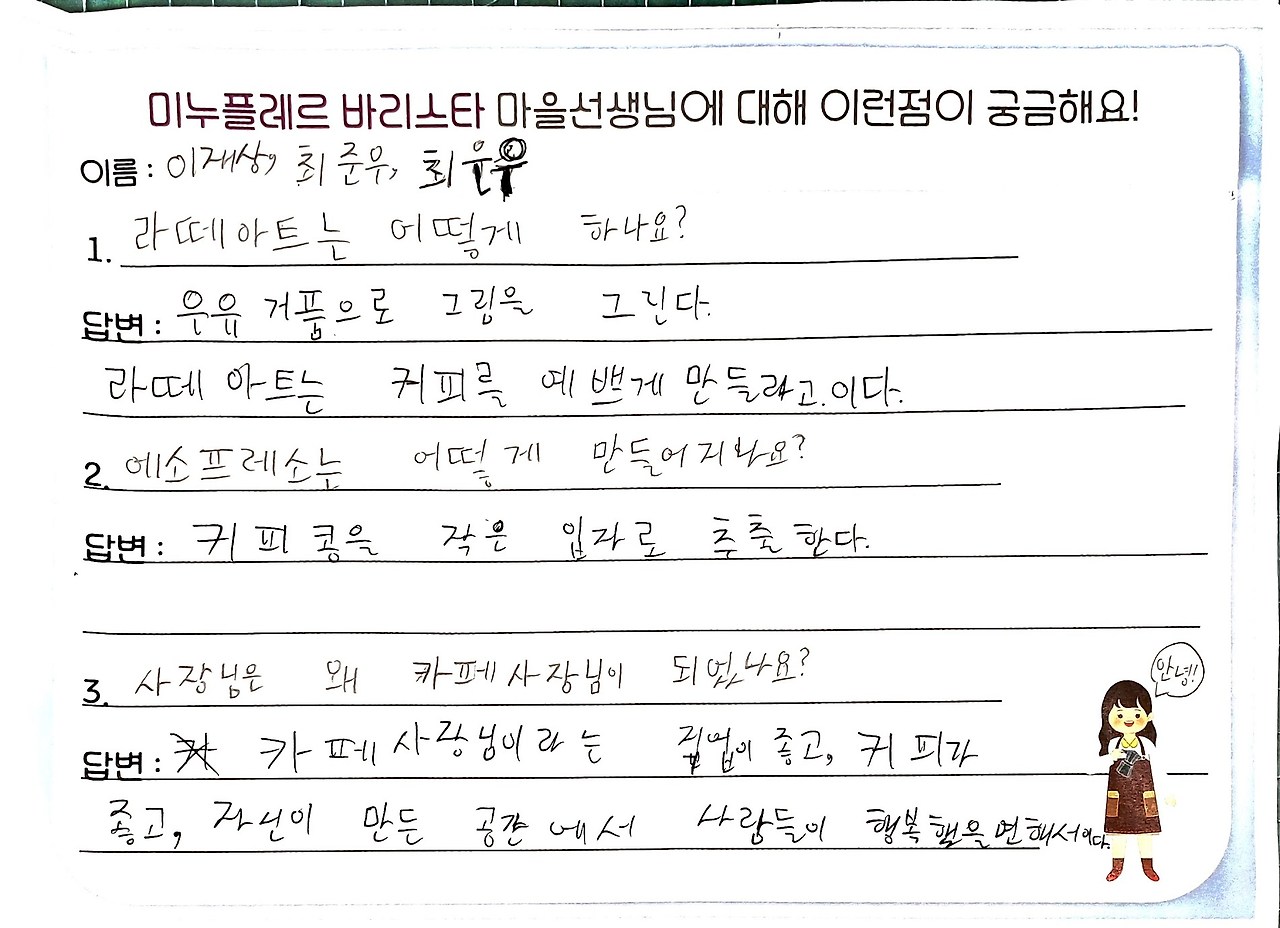 미누플레르 바리스타 마을선생님에 대해 이런점이 궁금해요!
이름 : 이재상, 최준우, 최은우
1. 라떼아트는 어떻게 하나요?
답변 : 우유 거품으로 그림을 그린다.
라떼 아트는 커피를 예쁘게 만들라고.이다.
2. 에소프레소는 어떻게 만들어지나요?
답변 : 커피콩을 작은 입자로 추출한다.
3. 사장님은 왜 카페사장님이 되었나요?
안녕!!
답변 : 카페사장님이라는 직업이 좋고, 커피라
좋고, 자신이 만든 공간에서 사람들이 행복했을면해서이다.